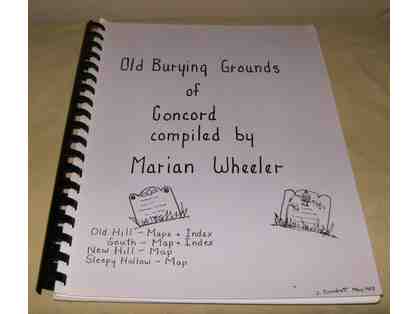 Old Burying Grounds
of
Concord
compiled by
Marian Wheeler
Old Hill - Maps + Index
South - Map + Index
New Hill - Map
Sleepy Hollow - Map